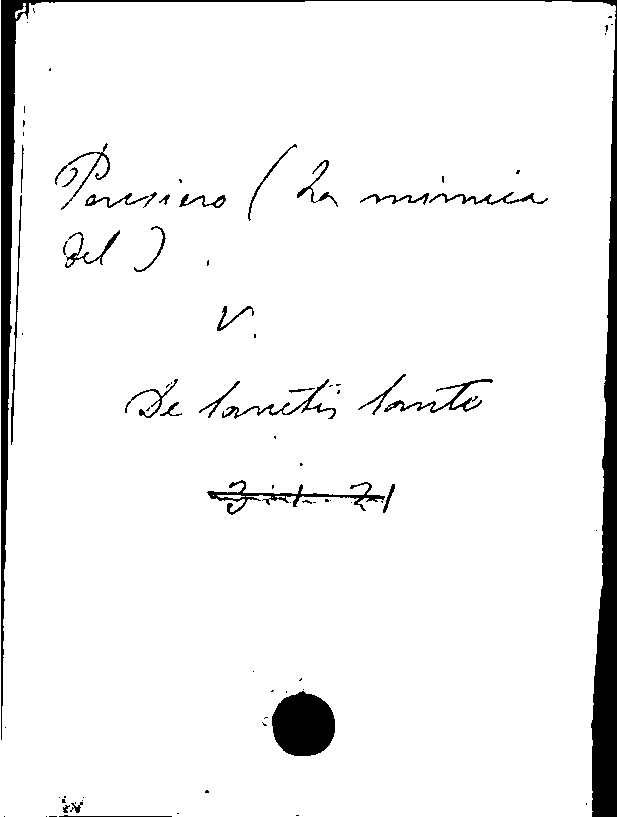 Pensiero (La mimica
del).
V.
De Sanctis Sante